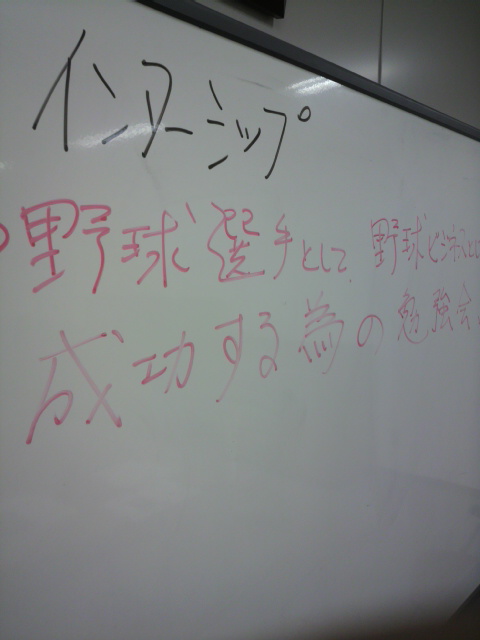 インターンシップ
野球選手として、野球ビジネスとし
成功する為の勉強会